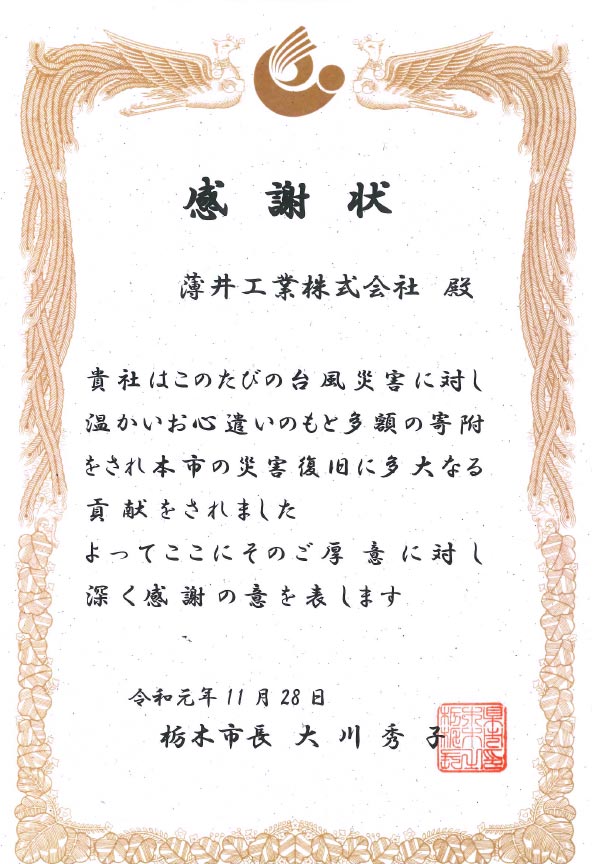 感謝状
薄井工業株式会社 殿
貴社はこのたびの台風災害に対し
温かいお心遣いのもと多額の寄附
をされ本市の災害復旧に多大なる
貢献をされました
よってここにそのご厚意に対し
深く感謝の意を表します
令和元年11月28日
栃木市長 大川秀子